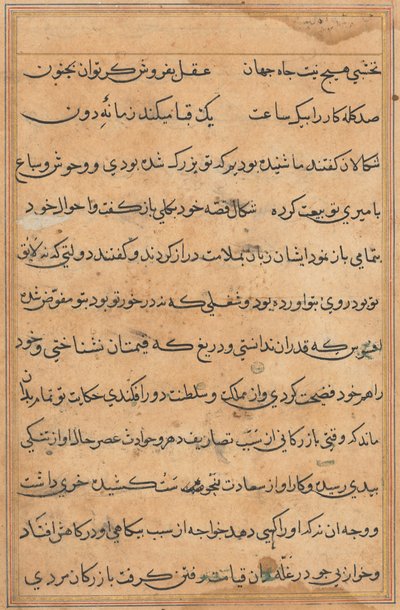 نخشبی هیچ نیست جاه جهان عقل بفروش گر توان بجنون
صد کله کار را بیک ساعت یک قبا میکند زمانهٔ دون
شکالان گفتند ما شنیده بودیم که تو بزرک شده بودی و وحوش و سباع
با میری تو بیعت کرده شکال قصه خود بکلی باز گفت و احوال خود
بتمامی باز نمود ایشان زبان بملامت دراز کردند و گفتند دولتی که نه لایق
تو بود روی بتو اورده بود و شغلی که نه در خور تو بود بتو مفوض شده
افسوس که قدر ان ندانستی و دریغ که قیمت ان نشناختی و خود
را هم خود فضیحت کردی و از مملکت و سلطنت دور افکندی حکایت تو تمام بدان
ماند که وقتی بازرکانی از سبب تصاریف دهر و حوادث عصر حال او از تنکی
ببدی رسیده و کار او از سعادت بنحوست کشیده خری داشت
و وجه ان نه که او را کهی دهد خواجه از سبب بیکاهی او در کاهش افتاد
و خر از بی جو در غله دان رفتن کرفت بازرکان مردی